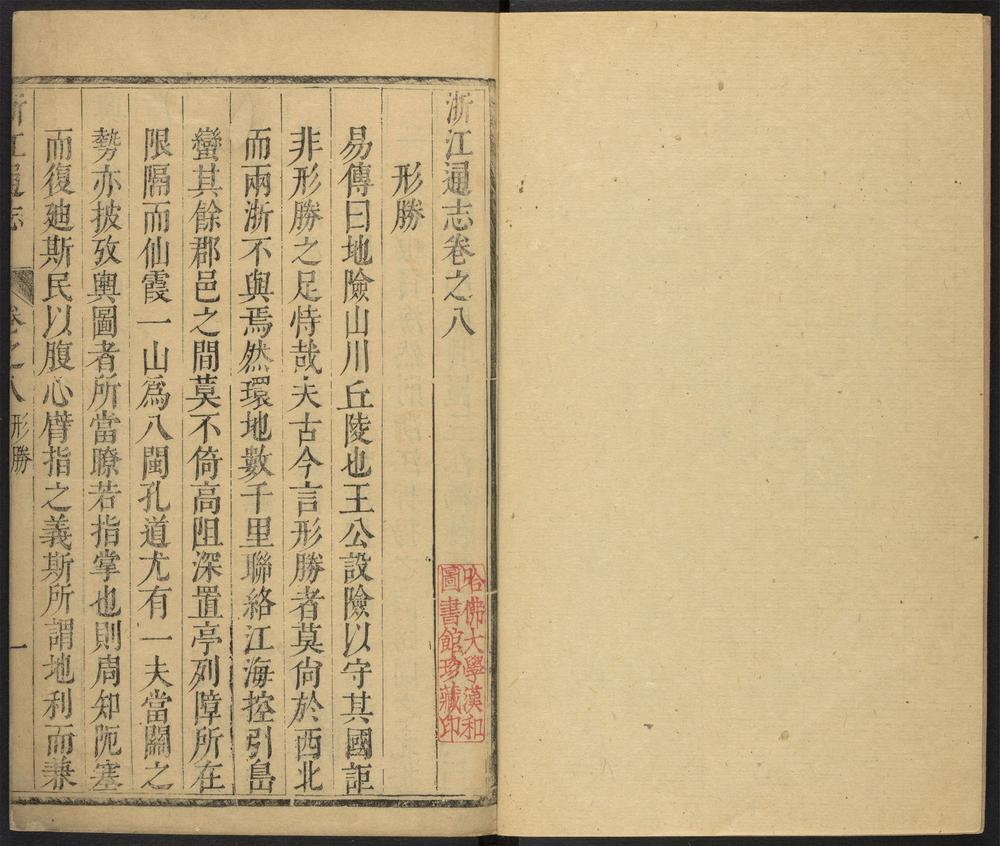 浙江通志卷之八
形勝
易傳曰地險山川丘陵也王公設險以守其國詎
非形勝之足恃哉夫古今言形勝者莫尙於西北
而兩浙不與焉然環地數千里聯絡江海控引島
蠻其餘郡邑之間莫不倚高阻深置亭列障所在
限隔而仙霞一山爲八閩孔道尤有一夫當關之
勢亦披攷輿圖者所當瞭若指掌也則周知阨塞
而復廸斯民以腹心臂指之義斯所謂地利而兼
浙江通志 卷之八 形勝 一
哈佛大學漢和
圖書館珍藏印